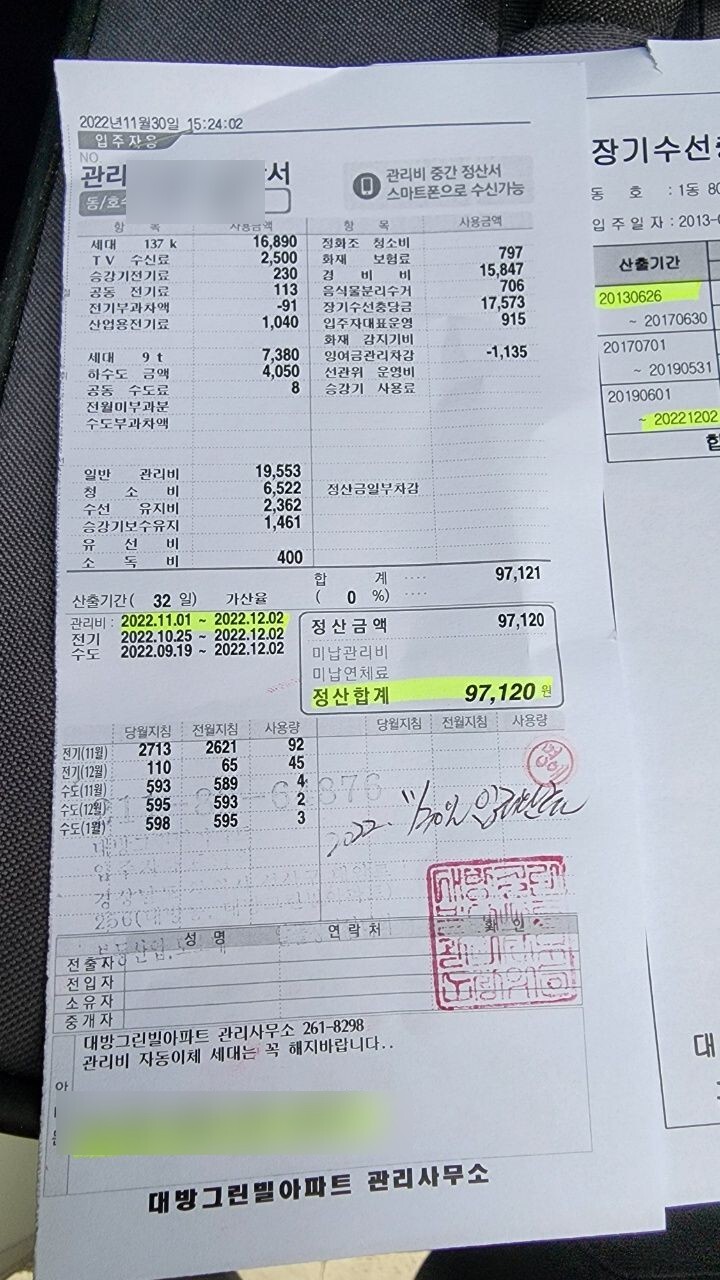 2022년11월30일 15:24:02
입주자용
NO
관리 서
동/호수
관리비 중간 정산서
스마트폰으로 수신가능
항 목 사용금액 항 목 사용금액
세대 137 k 16,890 정화조 청소비
TV 수신료 2,500 화재 보험료 797
승강기전기료 230 경 비 비 15,847
공동 전기료 113 음식물분리수거 706
전기부과차액 -91 장기수선충당금 17,573
산업용전기료 1,040 입주자대표운영 915
화재 감지기비
세대 9 t 7,380 잉여금관리차감 -1,135
하수도 금액 4,050 선관위 운영비
공동 수도료 8 승강기 사용료
전월미부과분
수도부과차액
일반 관리비 19,553
청 소 비 6,522 정산금일부차감
수선 유지비 2,362
승강기보수유지 1,461
유 선 비
소 독 비 400
합 계 ···· 97,121
산출기간( 32 일) 가산율 ( 0 %) ····
관리비 : 2022.11.01 ~ 2022.12.02
전기 2022.10.25 ~ 2022.12.02
수도 2022.09.19 ~ 2022.12.02
정산금액 97,120
미납관리비
미납연체료
정산합계 97,120 원
당월지침 전월지침 사용량 당월지침 전월지침 사용량
전기(11월) 2713 2621 92
전기(12월) 110 65 45
수도(11월) 593 589 4
수도(12월) 595 593 2
수도(1월) 598 595 3
2022. 11/30일
성 명 연 락 처 확 인
전 출 자
전 입 자
소 유 자
중 개 자
대방그린빌아파트 관리사무소 261-8298
관리비 자동이체 세대는 꼭 해지바랍니다..
대방그린빌아파트 관리사무소
장기수선충
동 호 : 1동 80
입 주 일 자 : 2013-0
산출기간
20130626
~ 20170630
20170701
~ 20190531
20190601
~ 20221202
합
대